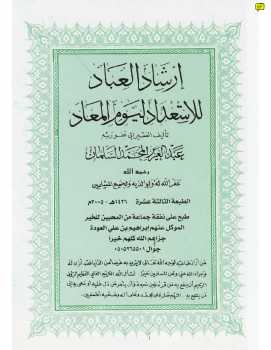 إرشاد العباد
للاستعداد ليوم المعاد
تأليف الفقير إلى عفو ربه
عبد العزيز المحمد السلمان
رحمه الله
غفر الله له ولوالديه ولجميع المسلمين
الطبعة الثالثة عشرة ١٤٢٦هـ - ٢٠٠٥م
طبع على نفقة جماعة من المحبين للخير
الموكل عنهم إبراهيم بن علي العودة
جزاهم الله كلهم خيرا